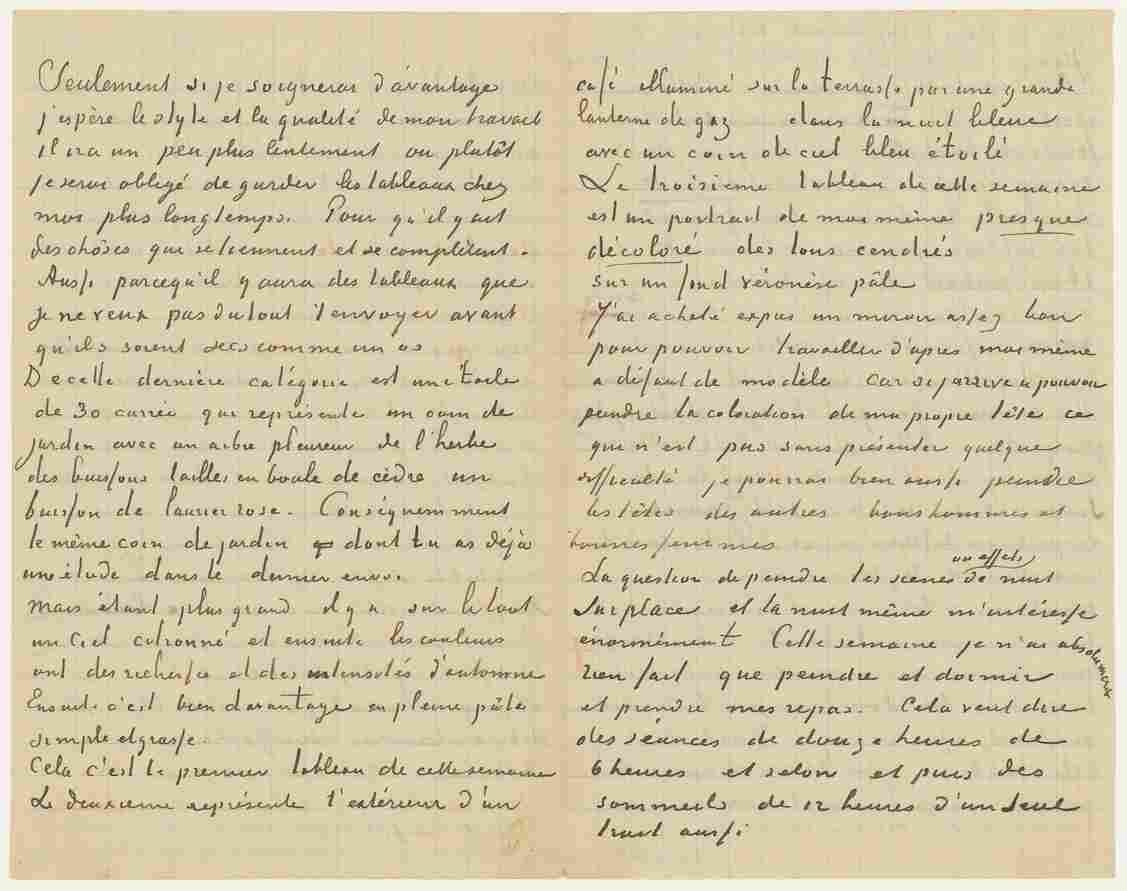 Seulement si je soignerai d'avantage
j'espère le style et la qualité de mon travail
il ira un peu plus lentement ou plutôt
je serai obligé de garder les tableaux chez
moi plus longtemps. Pour qu'il y ait
des choses qui se tiennent et se complètent.
Aussi parcequ'il y aura des tableaux que
je ne veux pas du tout t'envoyer avant
qu'ils soient secs comme un os
De cette dernière catégorie est une toile
de 30 carrée qui représente un coin de
jardin avec un arbre pleureur de l'herbe
des buissons taillés en boule de cèdre un
buisson de laurier rose. Conséquemment
le même coin de jardin dont tu as déjà
une étude dans le dernier envoi.
Mais étant plus grand il y a sur le tout
un Ciel citronné et ensuite les couleurs
ont des richesse et des intensités d'automne
Ensuite c'est bien davantage en pleine pâte
simple et grasse.
Cela c'est le premier tableau de cette semaine
Le deuxieme représente l'extérieur d'un
café illuminé sur la terrasse par une grande
lanterne de gaz dans la nuit bleue
avec un coin de ciel bleu étoilé
Le troisieme tableau de cette semaine
est un portrait de moi même presque
décoloré des tons cendrés
sur un fond véronèse pâle
J'ai acheté expès un miroir assez bon
pour pouvoir travailler d'apres moi même
a défaut de modèle car si j'arrive a pouvoir
peindre la coloration de ma propre tête ce
qui n'est pas sans présenter quelque
difficulté je pourrai bien aussi peindre
les têtes des autres bonshommes et
bonnes femmes
ou effets
La question de peindre les scenes de nuit
sur place et la nuit même m'intéresse
énormément Cette semaine je n'ai absolument
rien fait que peindre et dormir
et prendre mes repas. Cela veut dire
des séances de douze heures de
6 heures et selon et puis des
sommeils de 12 heures d'un seul
trait aussi